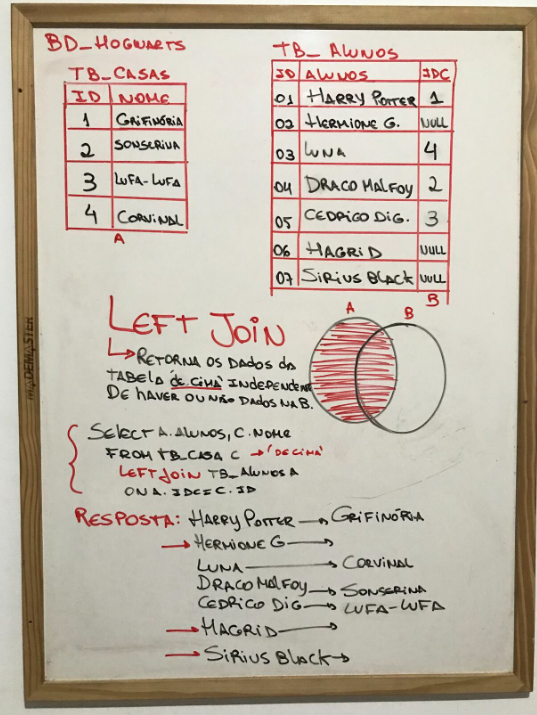 BD_HOGWARTS
TB_CASAS
ID NOME
1 GRIFINÓRIA
2 SONSERINA
3 LUFA-LUFA
4 CORVINAL
A
TB_ALUNOS
ID ALUNOS IDC
01 HARRY POTTER 1
02 HERMIONE G. NULL
03 LUNA 4
04 DRACO MALFOY 2
05 CEDRICO DIG. 3
06 HAGRID NULL
07 SIRIUS BLACK NULL
B
LEFT JOIN
A B
↳ RETORNA OS DADOS DA
TABELA 'DE CIMA' INDEPENDENTE
DE HAVER OU NÃO DADOS NA B.
SELECT A.ALUNOS, C.NOME
FROM TB_CASA C → 'DE CIMA'
LEFT JOIN TB_ALUNOS A
ON A.IDC = C.ID
RESPOSTA: HARRY POTTER → GRIFINÓRIA
→ HERMIONE G →
LUNA → CORVINAL
DRACO MALFOY → SONSERINA
CEDRICO DIG → LUFA-LUFA
→ HAGRID →
→ SIRIUS BLACK →